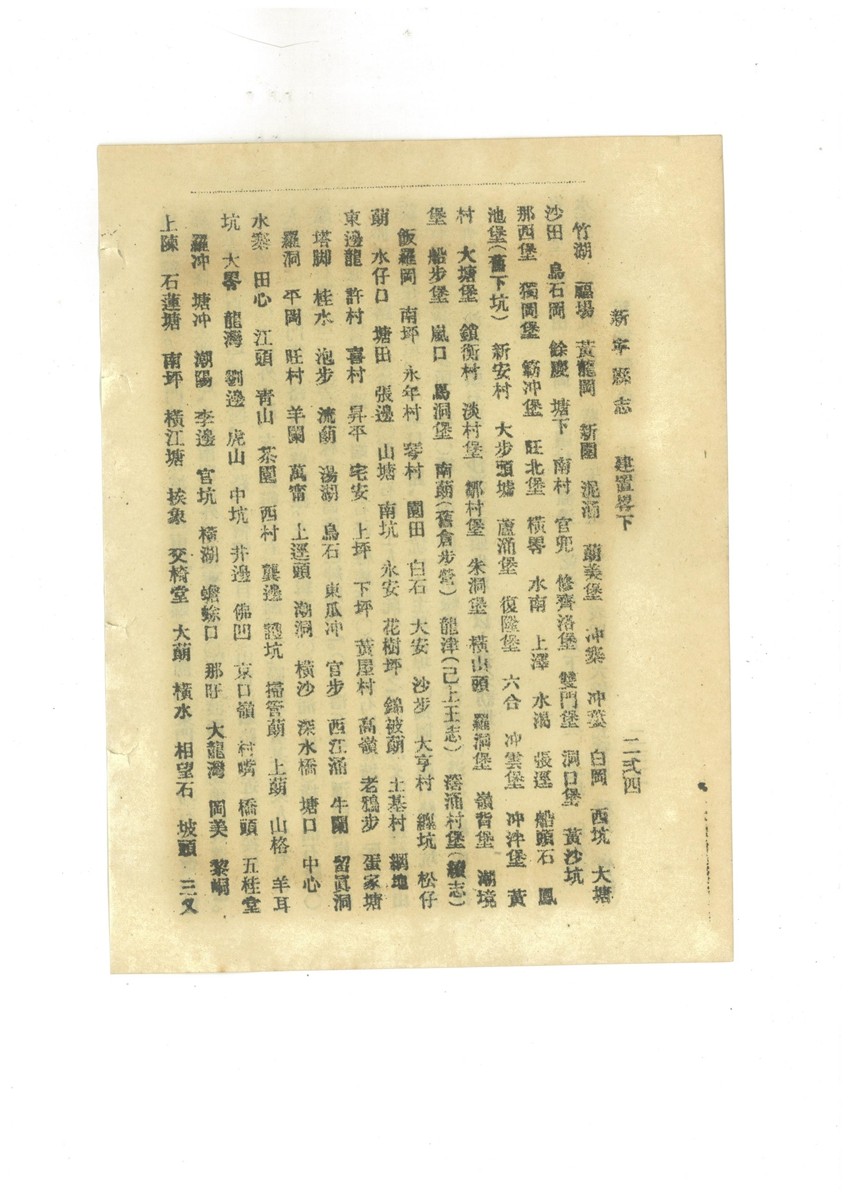 新寧縣志　建置畧下　二弍四
竹湖　福場　黃龍岡　新園　泥涌　萠美堡　冲蔞　冲葉　白岡　西坑　大塘
沙田　烏石岡　餘慶　塘下　南村　官兜　修齊洛堡　雙門堡　洞口堡　黃沙坑
那西堡　獨岡堡　簕冲堡　旺北堡　橫畧　水南　上澤　水濁　張逕　船頭石　鳳
池堡(舊下坑)　新安村　大步頭墟　蘆涌堡　復隆堡　六合　冲雲堡　冲泮堡　黃
村　大塘堡　鎖衡村　淡村堡　鄒村堡　朱洞堡　橫山頭　羅洞堡　嶺背堡　潮境
堡　船步堡　嵐口　馬洞堡　南萠(舊倉步營)　龍津(已上王志)　滘涌村堡(續志)
飯羅岡　南坪　永年村　琴村　園田　白石　大安　沙步　大亨村　綠坑　松仔
萠　水仔口　塘田　張邊　山塘　南坑　永安　花樹坪　錦被萠　土基村　網地
東邊龍　許村　喜村　昇平　宅安　上坪　下坪　黃屋村　高嶺　老鴉步　蛋家塘
塔脚　桂水　泡步　流萠　湯湖　烏石　東瓜冲　官步　西江涌　牛闌　留眞洞
羅洞　平岡　旺村　羊闌　萬甯　上逕頭　潮洞　橫沙　深水橋　塘口　中心
水蔾　田心　江頭　靑山　茶園　西村　龔邊　護坑　掃管萠　上萠　山格　羊耳
坑　大畧　龍灣　劉邊　虎山　中坑　井邊　佛凹　京口嶺　村嘴　橋頭　五桂堂
羅冲　塘冲　潮陽　李邊　官坑　橫湖　蟾蜍口　那旰　大龍灣　岡美　黎峒
上陳　石蓮塘　南坪　橫江塘　挨象　交椅堂　大萠　橫水　相望石　坡頭　三乂